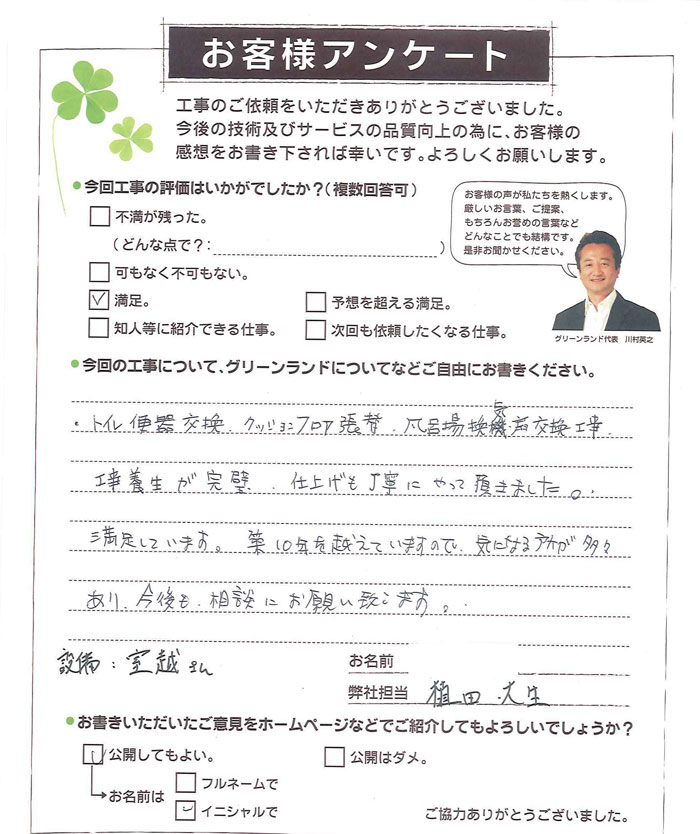 お客様アンケート
工事のご依頼をいただきありがとうございました。
今後の技術及びサービスの品質向上の為に、お客様の
感想をお書き下されば幸いです。よろしくお願いします。
今回工事の評価はいかがでしたか？(複数回答可)
お客様の声が私たちを熱くします。
厳しいお言葉、ご提案、
もちろんお誉めの言葉など
どんなことでも結構です。
是非お聞かせください。
不満が残った。
(どんな点で？: )
可もなく不可もない。
満足。 予想を超える満足。
知人等に紹介できる仕事。 次回も依頼したくなる仕事。
グリーンランド代表 川村英之
今回の工事について、グリーンランドについてなどご自由にお書きください。
・トイレ便器交換、クッションフロア張替、風呂場換気扇交換工事、
工事養生が完璧、仕上げも丁寧にやって頂きました。
満足しています。 築10年を越えていますので、気になる所が多々
あり、今後も、相談にお願い致します。
設備:室越さん
お名前
弊社担当 植田 大生
お書きいただいたご意見をホームページなどでご紹介してもよろしいでしょうか？
公開してもよい。 公開はダメ。
お名前は フルネームで
イニシャルで
ご協力ありがとうございました。